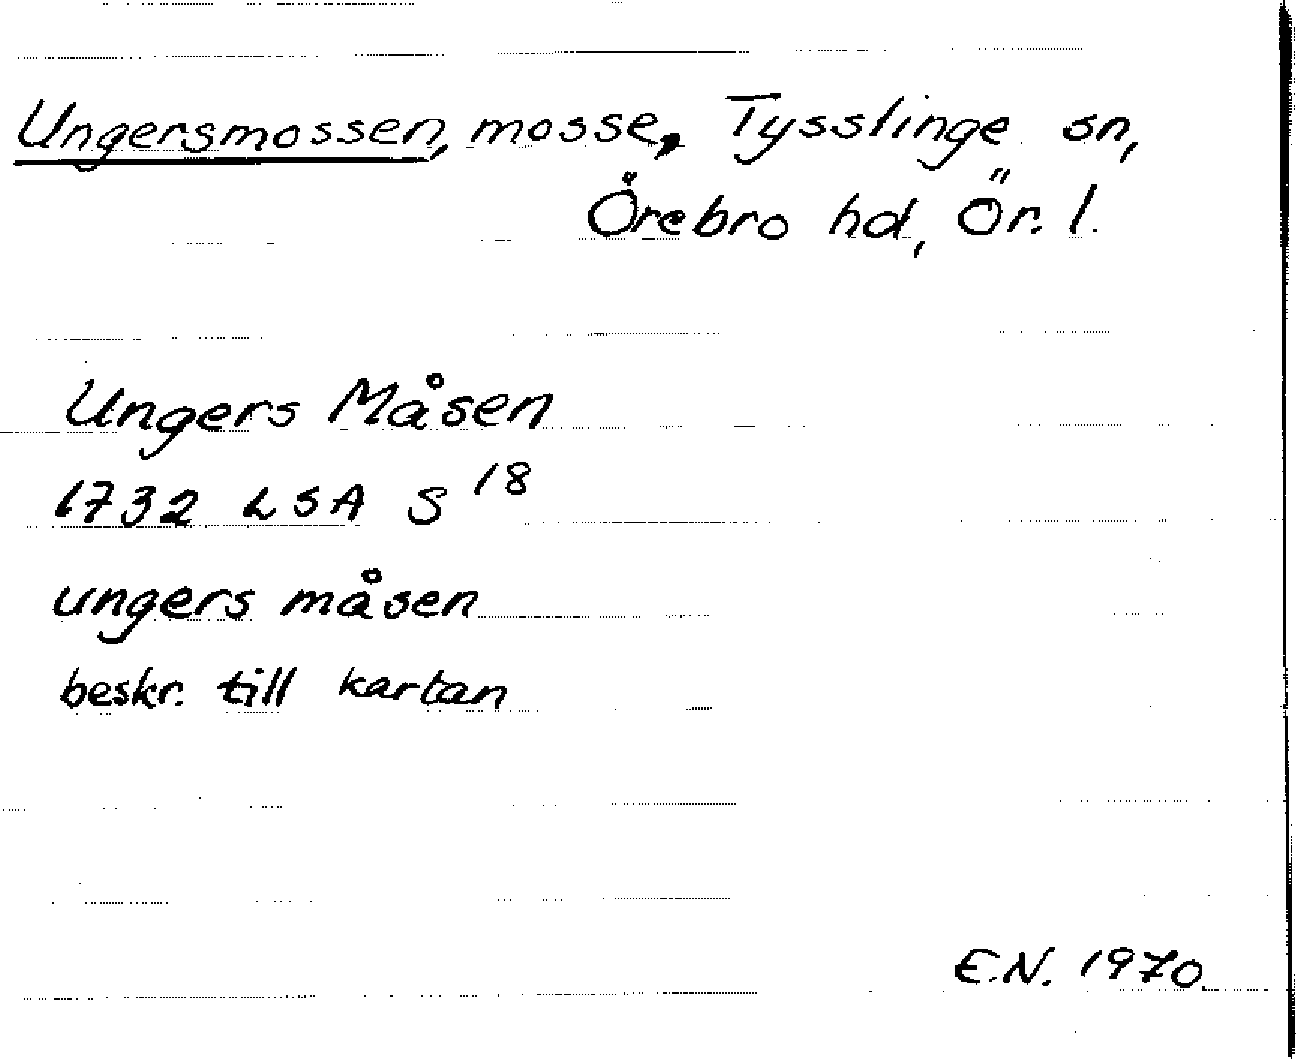 Ungersmossen, mosse, Tysslinge sn,
Örebro hd, Ör. l.
Ungers Måsen
1732 LSA S 18
ungers måsen
beskr. till kartan
E.N. 1970.